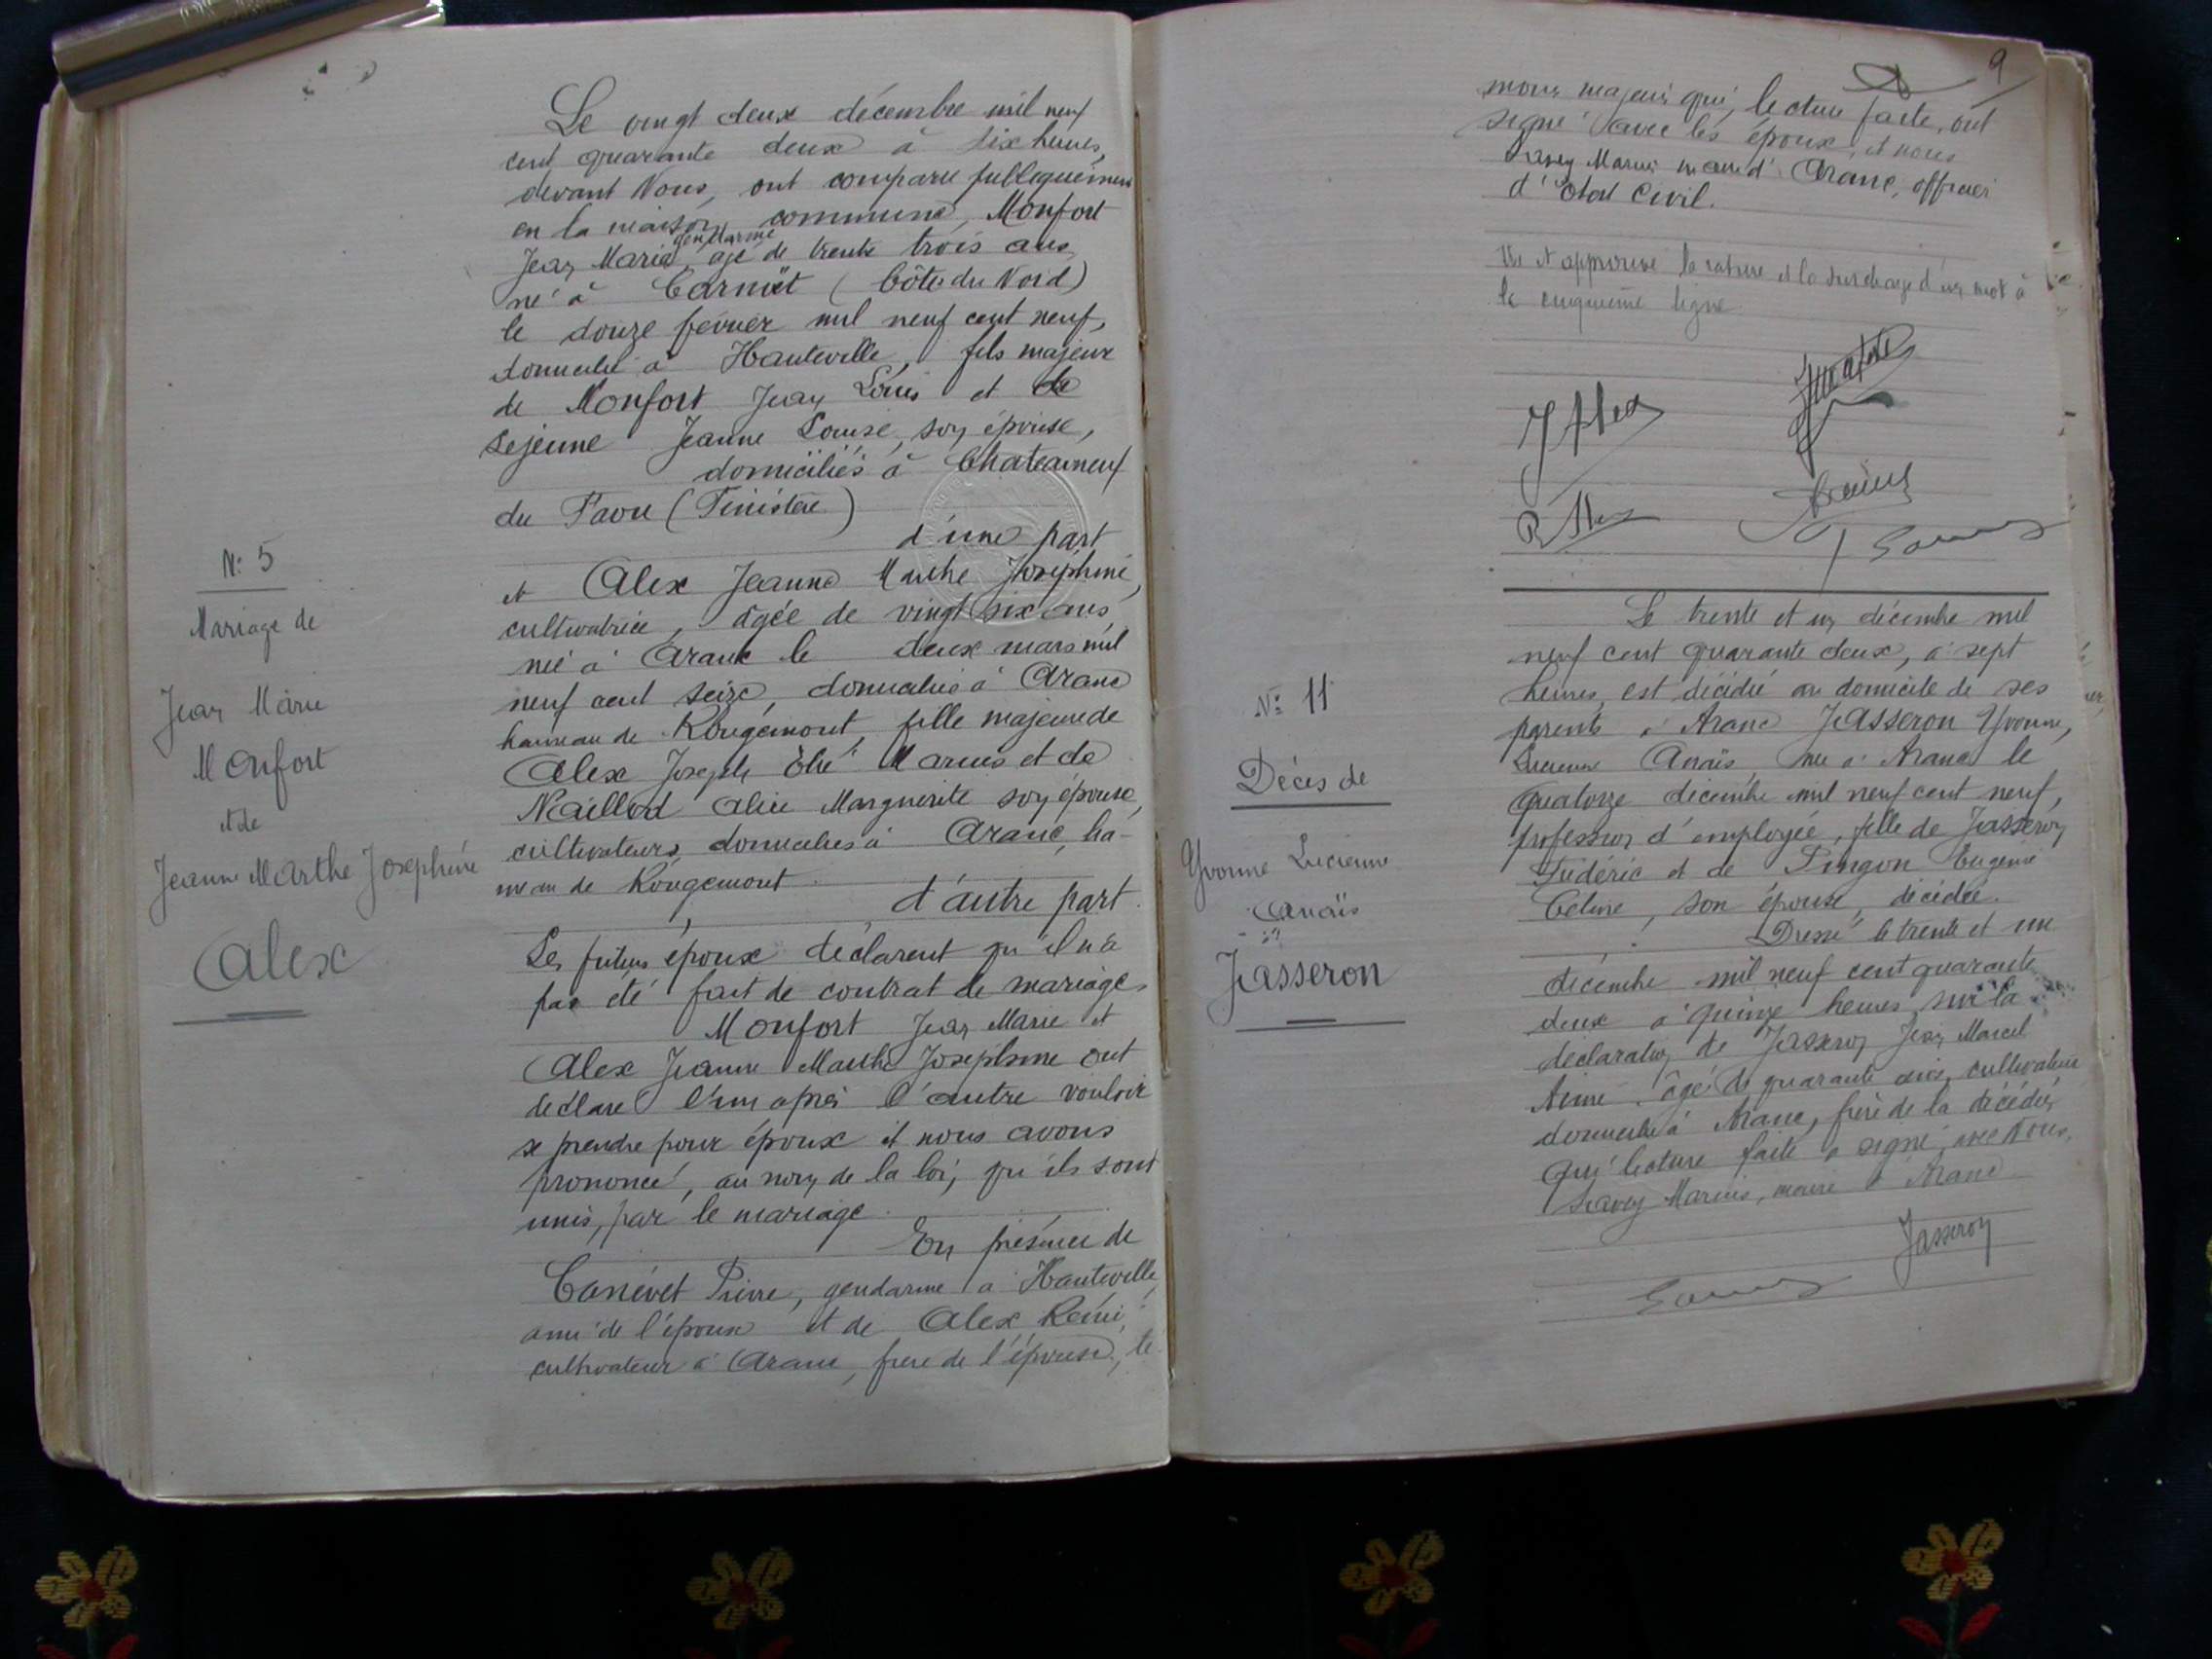 Le vingt deux décembre mil neuf
cent quarante deux à dix heures,
devant Nous, ont comparu publiquement
en la maison commune, Monfort
gendarme
Jean Marie, agé de trente trois ans,
né à Carnoët (Côtes du Nord)
le douze février mil neuf cent neuf,
domicilié à Hauteville, fils majeur
de Monfort Jean Louis et de
Lejeune Jeanne Louise, son épouse,
domiciliés à Chateauneuf
du Faou (Finistère)
d'une part
N: 5
et Alex Jeanne Marthe Joséphine,
cultivatrice, âgée de vingt six ans,
Mariage de
née à Aranc le deux mars mil
neuf cent seize, domiciliée à Aranc
Jean Marie
hameau de Rougemont, fille majeure de
Monfort
Alex Joseph Elie Marius et de
et de
Alice Marguerite son épouse,
cultivateurs, domiciliés à Aranc, ha-
Jeanne Marthe Joséphine
meau de Rougemont
d'autre part.
Alex
Les futurs époux déclarent qu'il n'a
pas été fait de contrat de mariage.
Monfort Jean Marie et
Alex Jeanne Marthe Josephine ont
declaré l'un après l'autre vouloir
se prendre pour époux et nous avons
prononcé, au nom de la loi, qu'ils sont
unis, par le mariage.
En présence de
Canévet Pierre, gendarme à Hauteville,
ami de l'époux et de Alex Rémi,
cultivateur à Aranc, frère de l'épouse, té
9
moins majeurs qui, lecture faite, ont
signé avec les époux, et nous
Marius maire d'Aranc, officier
d'Etat Civil.
Vu et approuvé la rature et la surcharge d'un mot à
la cinquième ligne
J Alex
R Alex
Le trente et un décembre mil
neuf cent quarante deux, à sept
heures, est décédée au domicile de ses
N: 11
parents à Aranc JASSERON Yvonne,
Décès de
Lucienne Anaïs née à Aranc le
quatorze décembre mil neuf cent neuf,
profession d'employée, fille de Jasseron
Yvonne Lucienne
Frédéric et de Pingon Eugénie
Anaïs
Céline, son épouse, décédée.
Jasseron
Dressé le trente et un
décembre mil neuf cent quarante
deux à quinze heures, sur la
déclaration de Jasseron Jean Marcel
Aimé, âgé de quarante ans, cultivateur
domicilié à Aranc, frère de la décédée,
qui lecture faite a signé avec Nous,
Marius, maire d'Aranc
Jasseron